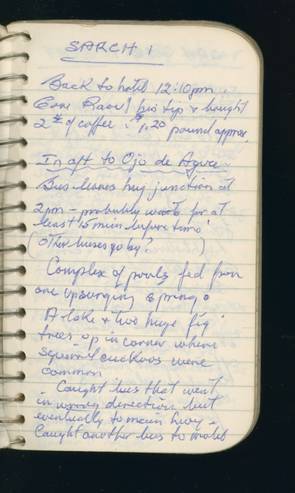 SARCH 1
Back to hotel 12:10pm
Gave Raoul his tip & bought
2# of coffee $1.20 pound approx.
In aft to Ojo de Agua
Bus leaves hwy junction at
2pm - probably wait for at
least 15 min before time
(Other buses go by? )
Complex of pools fed from
one upsurging spring.
A lake & two huge fig
trees up in corner where
squirrel cuckoos were
common
Caught bus that went
in wrong direction but
eventually to main hwy -
Caught another bus to hotel